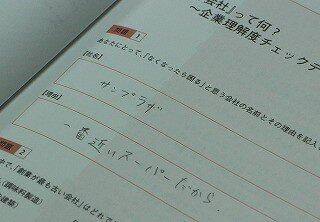 会社」って何？
～企業理解度チェックテ
問題 1
あなたにとって、「なくなったら困る」と思う会社の名前とその理由を記入
【社名】
サンプラザ
【理由】
一番近いスーパーだから.
問題 2
で、「創業が最も古い会社」はどれで
（調味料製造）